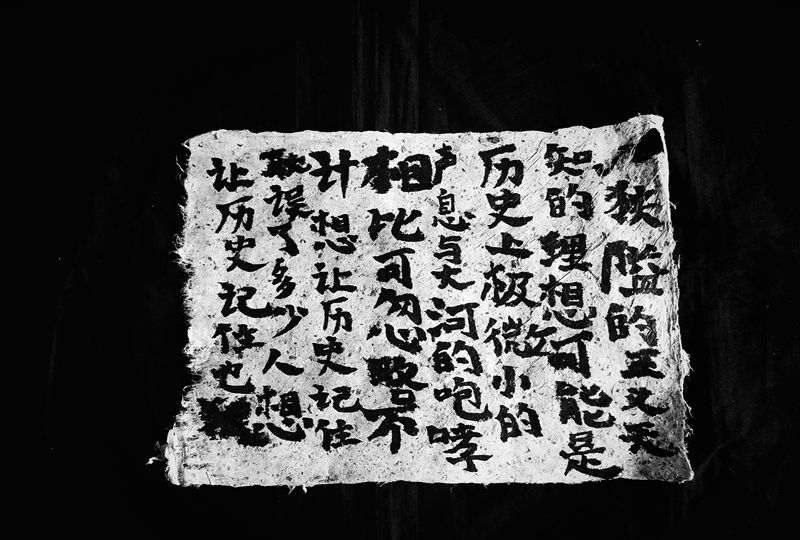 狭隘的正义无
知的理想可能是
历史上极微小的
声息与大河的咆哮
相比可忽略不
计想让历史记住
耽误了多少人想
让历史记住也